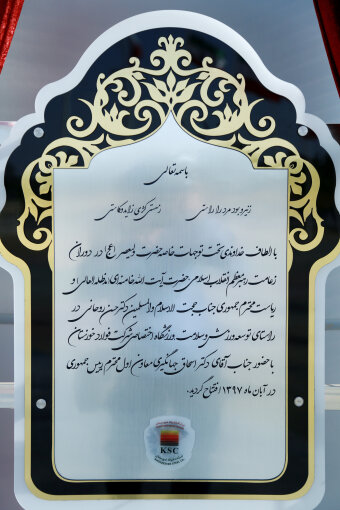 باسمه تعالی
ز نیرو بود مرد را راستی ز سستی کژی زاید و کاستی
با الطاف خداوندی و تحت توجهات خاصه حضرت ولیعصر (عج) در دوران
زعامت رهبر معظم انقلاب اسلامی حضرت آیت الله خامنه ای مدظله العالی و
ریاست محترم جمهوری جناب حجت الاسلام والمسلمین دکتر حسن روحانی در
راستای توسعه ورزش و سلامت ورزشگاه اختصاصی شرکت فولاد خوزستان
با حضور جناب آقای دکتر اسحاق جهانگیری معاون اول محترم رییس جمهوری
در آبان ماه ۱۳۹۷ افتتاح گردید.
KSC